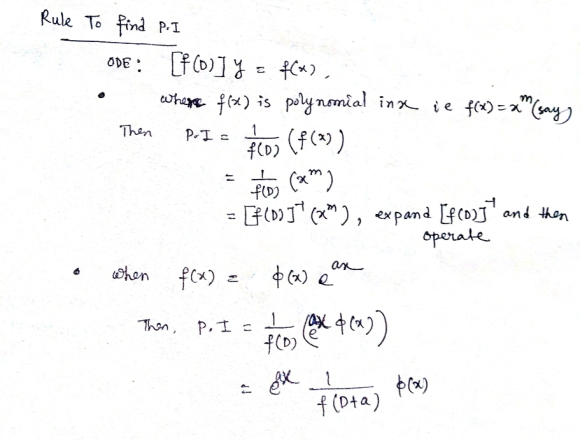 Rule To find P.I
ODE : [f(D)] y = f(x),
• where f(x) is polynomial in x ie f(x) = x^m (say)
Then P.I = 1/f(D) (f(x))
= 1/f(D) (x^m)
= [f(D)]^-1 (x^m), expand [f(D)]^-1 and then
operate
• when f(x) = φ(x) e^ax
Then, P.I = 1/f(D) (e^ax φ(x))
= e^ax 1/f(D+a) φ(x)